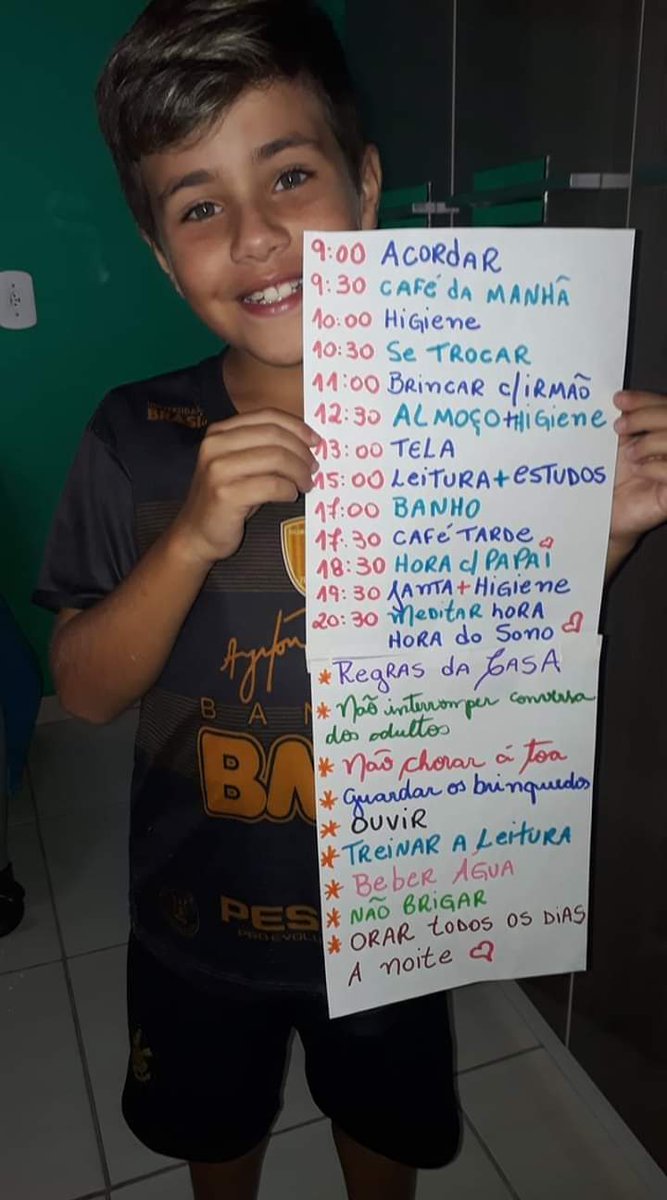 9:00 ACORDAR
9:30 CAFÉ DA MANHÃ
10:00 HIGIENE
10:30 SE TROCAR
11:00 BRINCAR C/IRMÃO
12:30 ALMOÇO+HIGIENE
13:00 TELA
15:00 LEITURA+ESTUDOS
17:00 BANHO
17:30 CAFÉ TARDE
18:30 HORA C/ PAPAI
19:30 JANTA+HIGIENE
20:30 MEDITAR HORA
HORA do SONO
* REGRAS DA CASA
* Não interromper conversa
dos adultos
* Não chorar á toa
* Guardar os brinquedos
* OUVIR
* TREINAR A LEITURA
* BEBER ÁGUA
* NÃO BRIGAR
* ORAR TODOS OS DIAS
A NOITE
BRASIL
BAN
BM
PES
PRO EVOLU